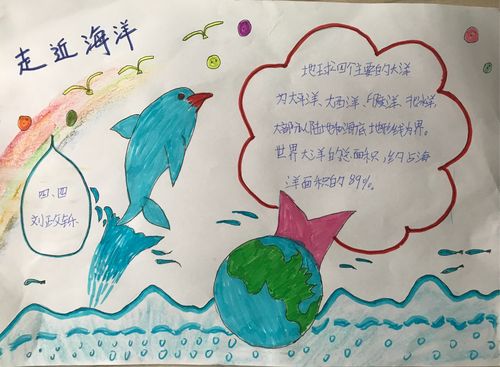 走近海洋
地球四个主要的大洋
为太平洋、大西洋、印度洋、北冰洋,
大部分以陆地和海底地形线为界。
世界大洋的总面积,约占海
洋面积的89%。
四、四
刘政钚